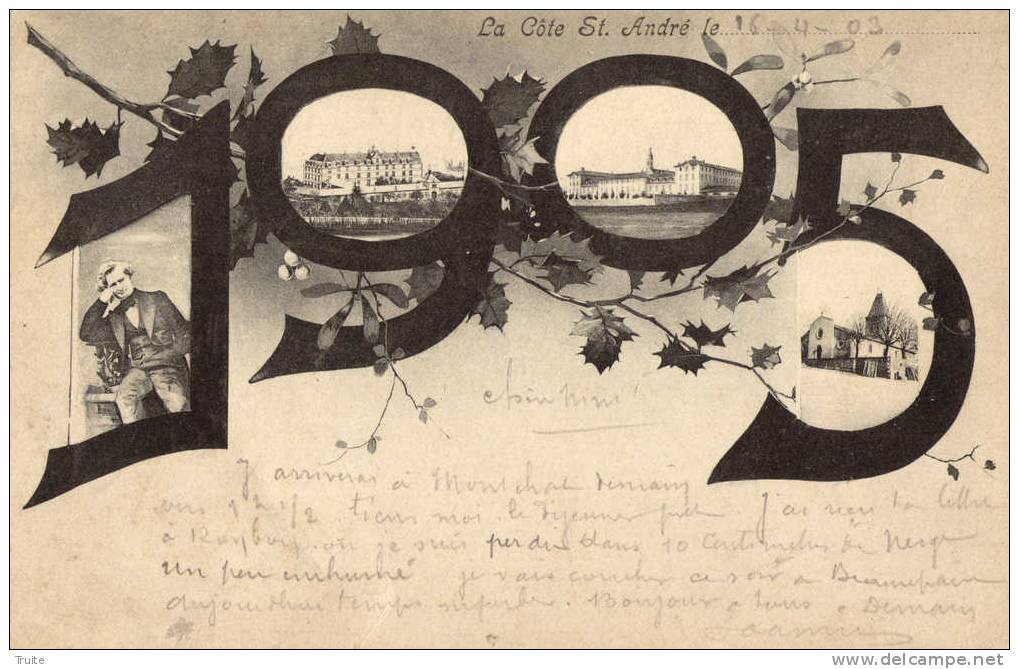 La Côte St. André le 16-4-03
1905
J'arriverai à Montchat demain
vers 1 h 1/2 tiens moi le déjeuner prêt. J'ai reçu ta lettre
à Roybon où je suis perdu dans 10 centimètres de neige
un peu enrhumé je vais coucher ce soir à Beaurepaire
aujourdhui temps superbe. Bonjour à tous à Demain
Truite
www.delcampe.net